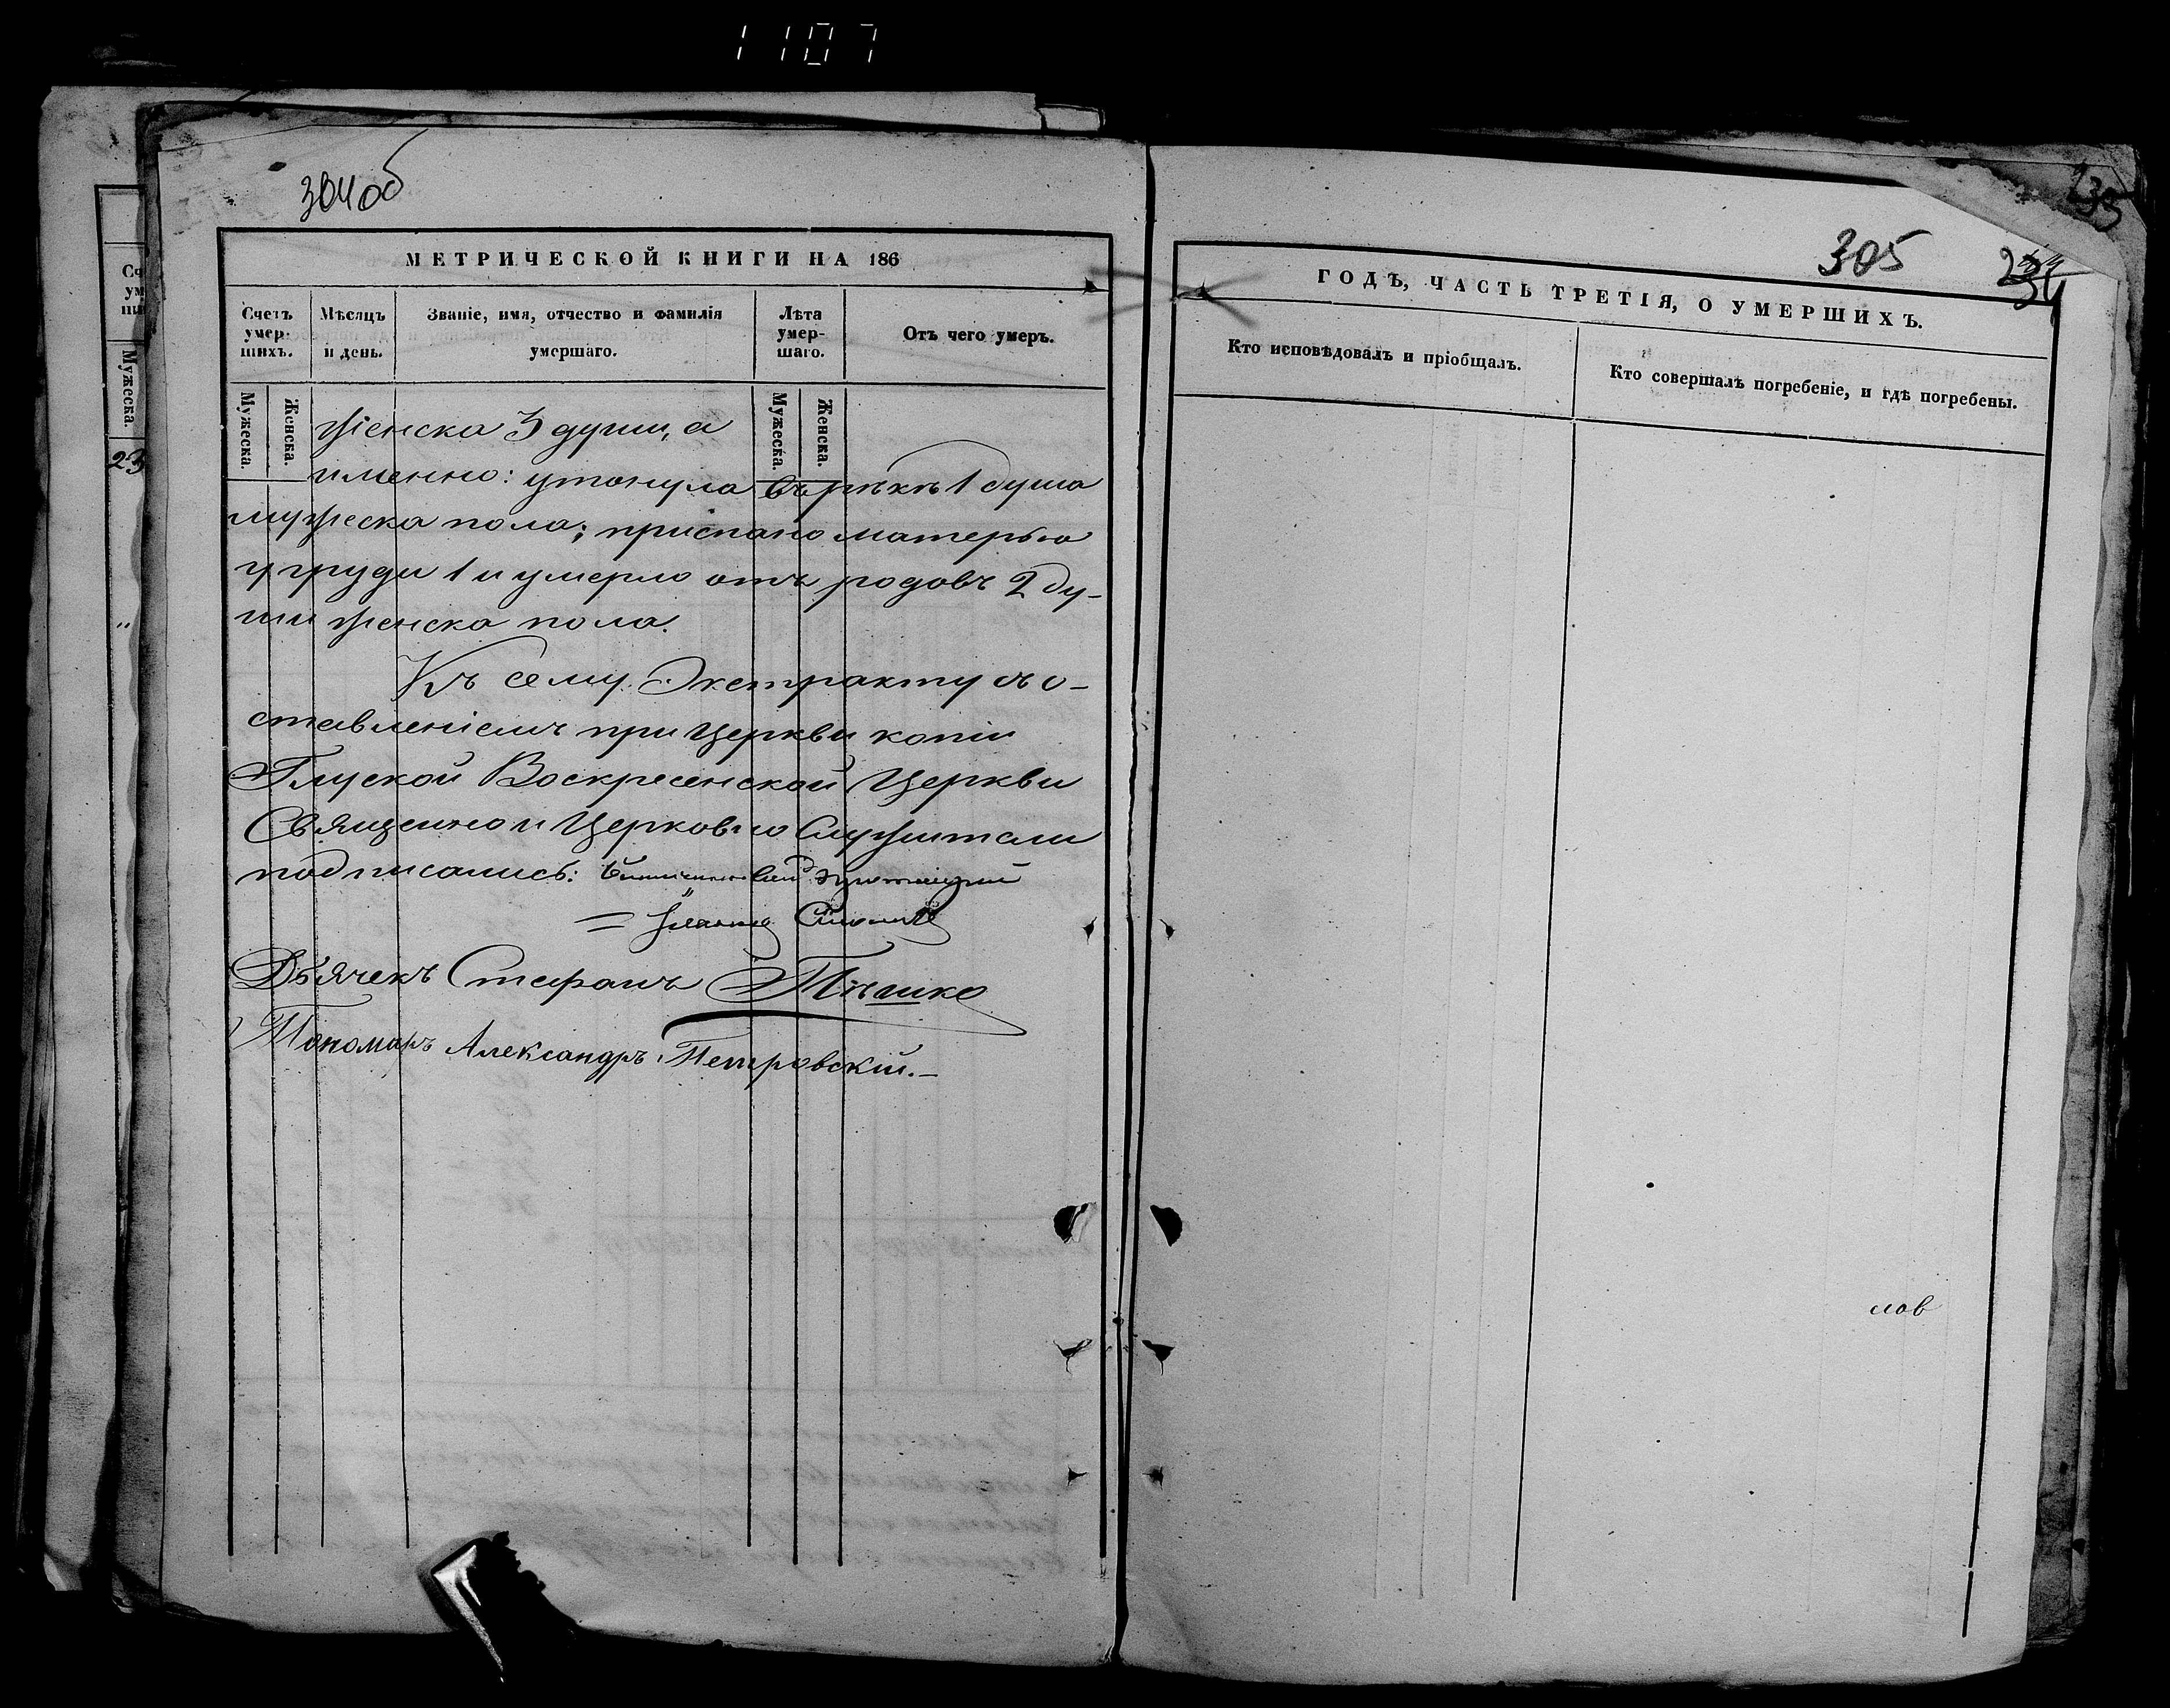 1107
304об
МЕТРИЧЕСКОЙ КНИГИ НА 186
Счетъ умер- шихъ.
Мѣсяцъ и день.
Званіе, имя, отчество и фамилія умершаго.
Лѣта умер- шаго.
Отъ чего умеръ.
Мужеска.
Женска.
Мужеска.
Женска.
женска 3 души, а
именно: утонула въ рѣкѣ 1 душа
мужеска пола; приспано матерью
у груди 1 и умерло отъ родовъ 2 ду-
ши женска пола.
Къ сему Экстракту съ о-
ставленіемъ при Церкви копіи
Глуской Воскресенской Церкви
Священно и Церковно Служители
подписались:
Дьячекъ Стефанъ Тѣшко
Пономаръ Александръ Петровскій.—
Сч
ум
ши
Мужеска.
23
"
235
305
ГОДЪ, ЧАСТЬ ТРЕТІЯ, О УМЕРШИХЪ.
Кто исповѣдовалъ и пріобщалъ.
Кто совершалъ погребеніе, и гдѣ погребены.